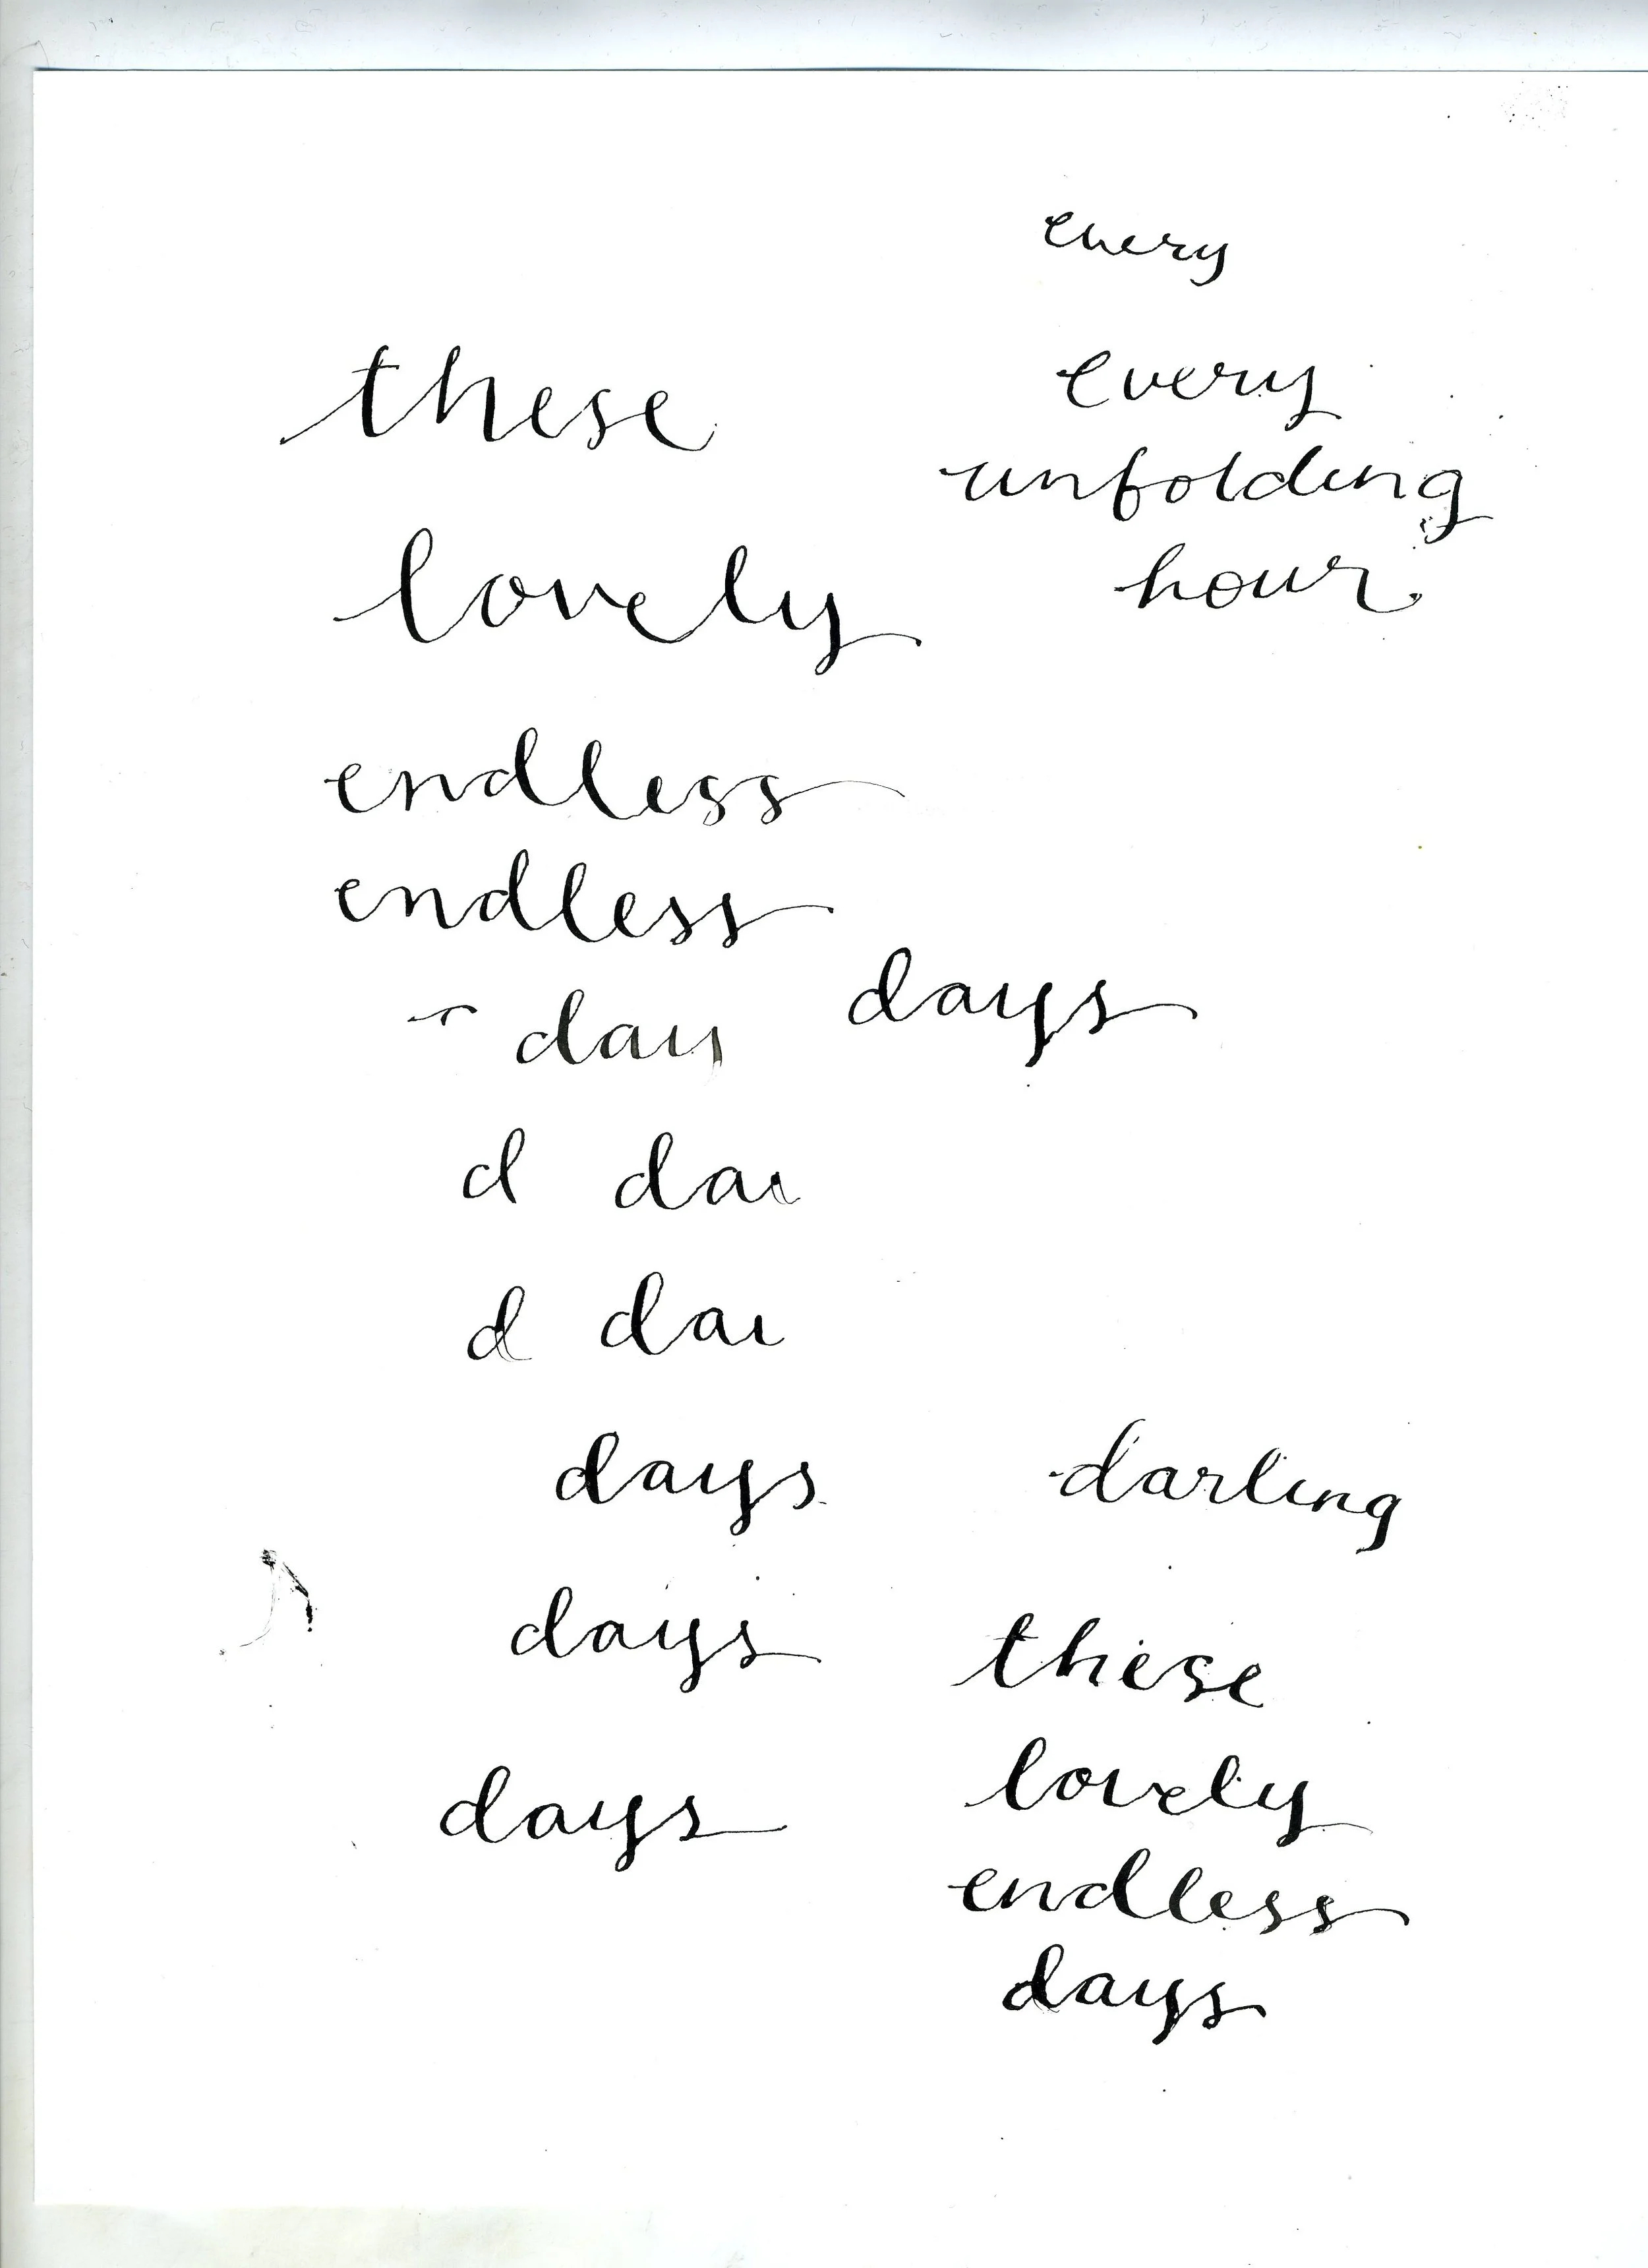 every
these
every
unfolding
hour
lovely
endless
endless
days
day
d da
d da
days
darling
days
these
days
lovely
endless
days